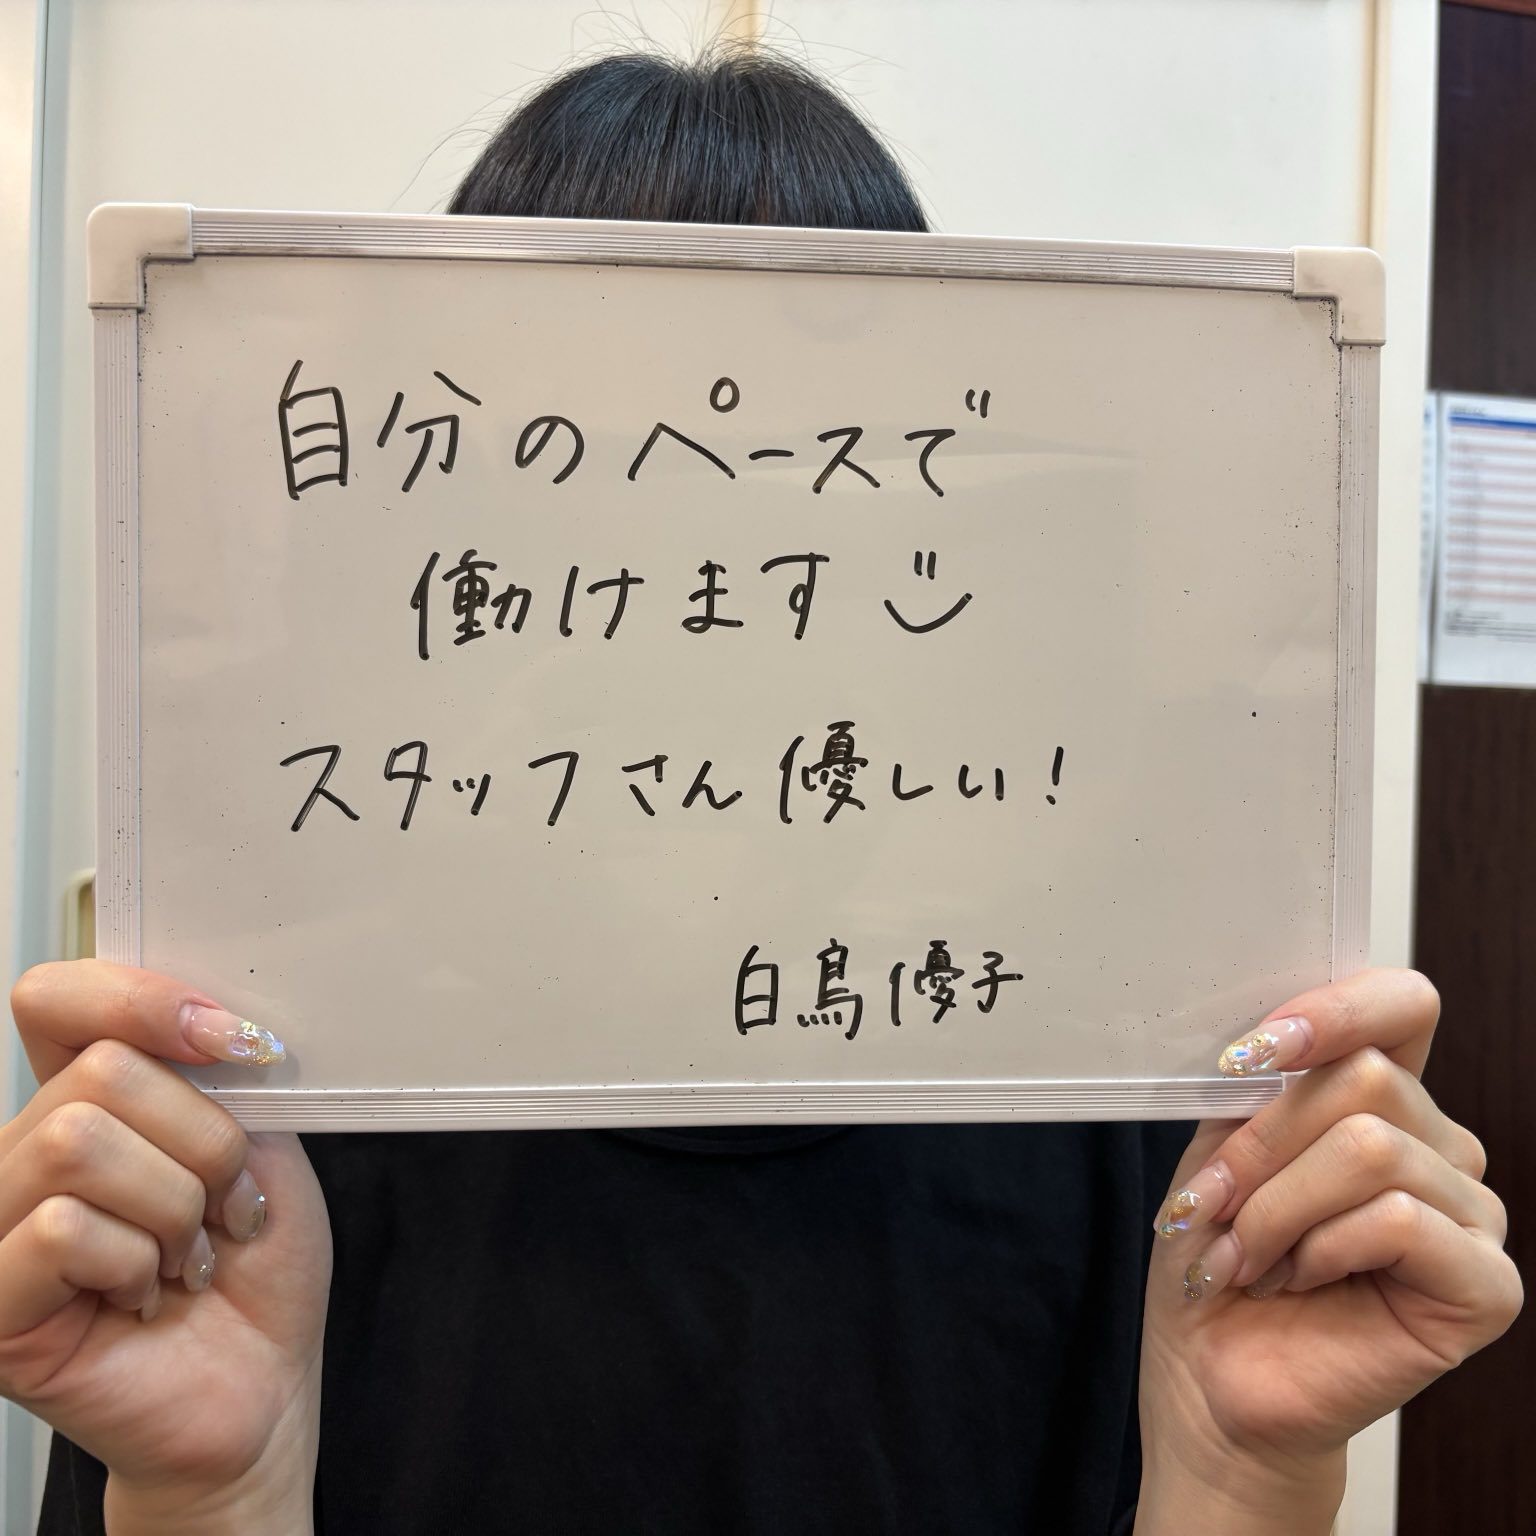 自分のペースで
働けます
スタッフさん優しい!
白鳥優子